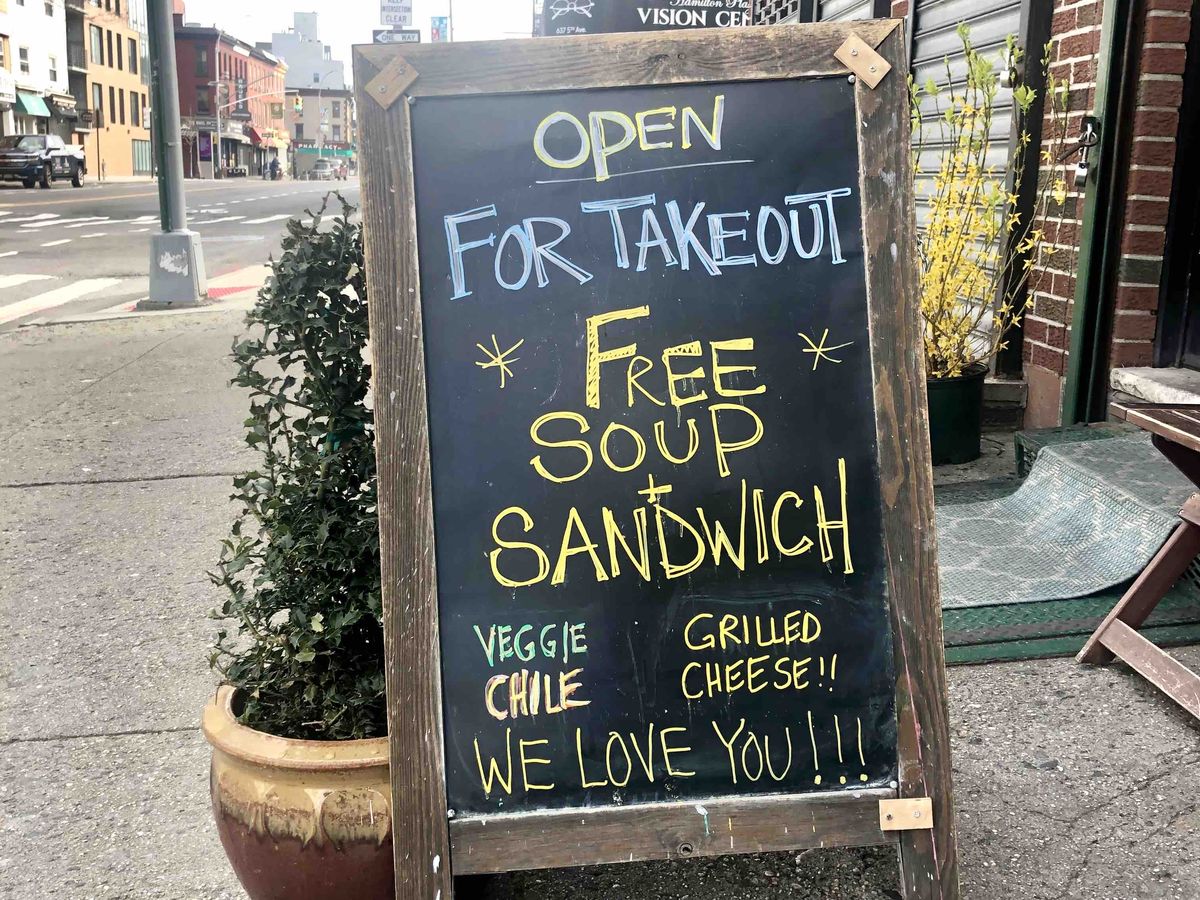 KEEP
INTERSECTION
CLEAR
ONE WAY
Hamilton Pla
VISION CEN
637 5th Ave.
PHARMACY
OPEN
FOR TAKEOUT
* FREE *
SOUP
+
SANDWICH
VEGGIE
CHILE
GRILLED
CHEESE!!
WE LOVE YOU!!!